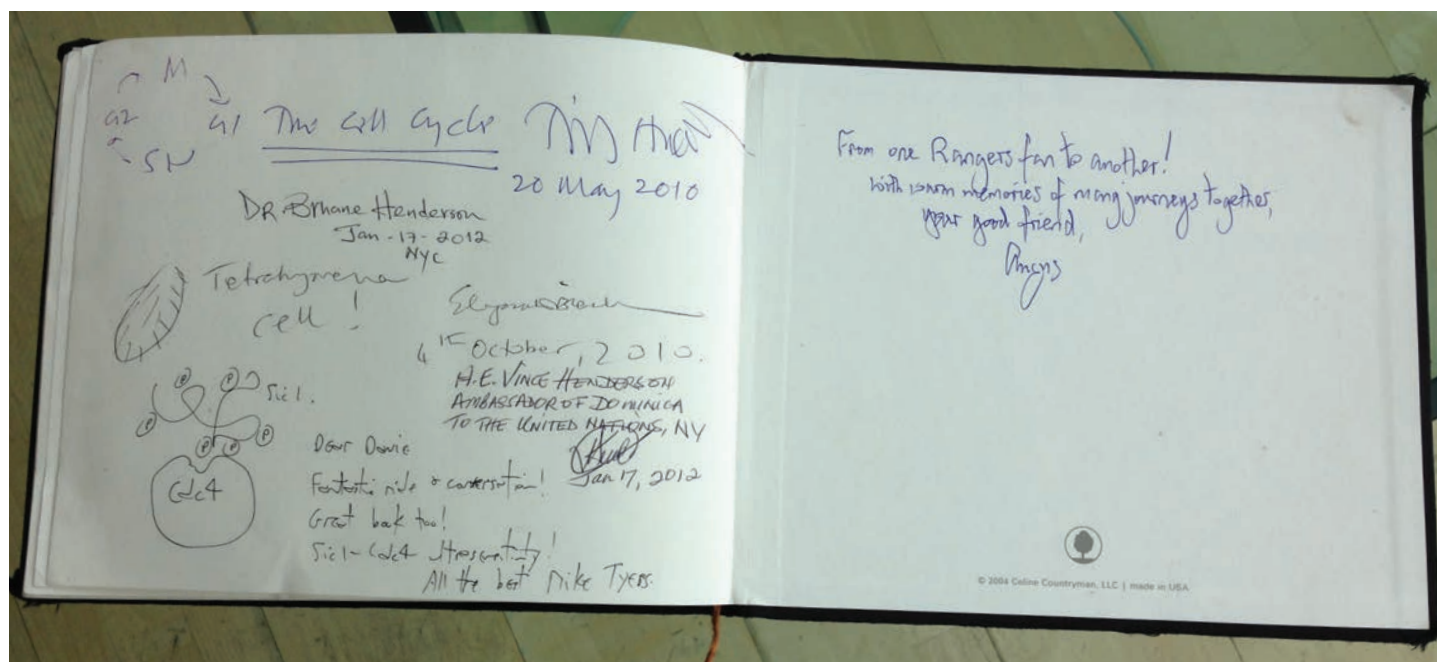 M
G2 G1 The Cell Cycle Tim Hunt
S
20 May 2010
DR Briane Henderson
Jan-17-2012
NYC
Tetrahymena
cell!
4th October, 2010.
H.E. VINCE HENDERSON
AMBASSADOR OF DOMINICA
TO THE UNITED NATIONS, NY
Jan 17, 2012
P P Sic1.
P P P P
Cdc4
Dear
Fantastic ride & conversation!
Great book too!
Sic1-Cdc4 ultrasensitivity!
All the best Mike Tyers.
From one Rangers fan to another!
with warm memories of many journeys together,
your good friend,
Angus
© 2004 Celine Countryman, LLC | made in USA